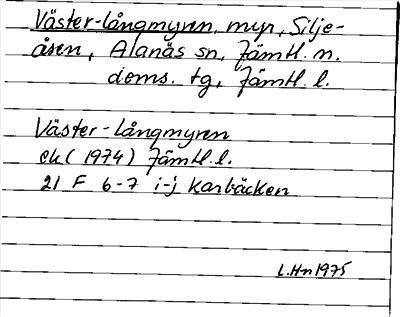 Väster-långmyren, myr, Silje-
åsen, Alanäs sn, Jämtl. n.
doms. tg, Jämtl. l.
Väster-långmyren
ek (1974) Jämtl. l.
21 F 6-7 i-j Karbäcken
L.Hn 1975